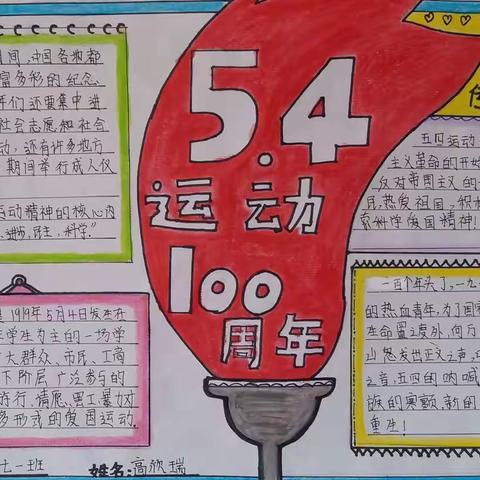 期间,中国各地都
富多彩的纪念
还要集中进
社会志愿和社会
动,还有许多地方
期间举行成人仪
运动精神的核心内
进步,民主,科学。"
1919年5月4日发生在
年学生为主的一场学
广大群众、市民、工商
下阶层广泛参与的
游行、请愿、罢工、暴力
多形式的爱国运动.
5.4
运动
100
周年
五四运动
主义革命的开始
反对帝国主义的
民,热爱祖国,积极
索科学爱国精神!
一百个年头了,一九
的热血青年,为了国家
生命置之度外,向万
发出正义之声,
之音,五四的呐喊
族的寒颤,新的
重生!
七一班
姓名:高欣瑞